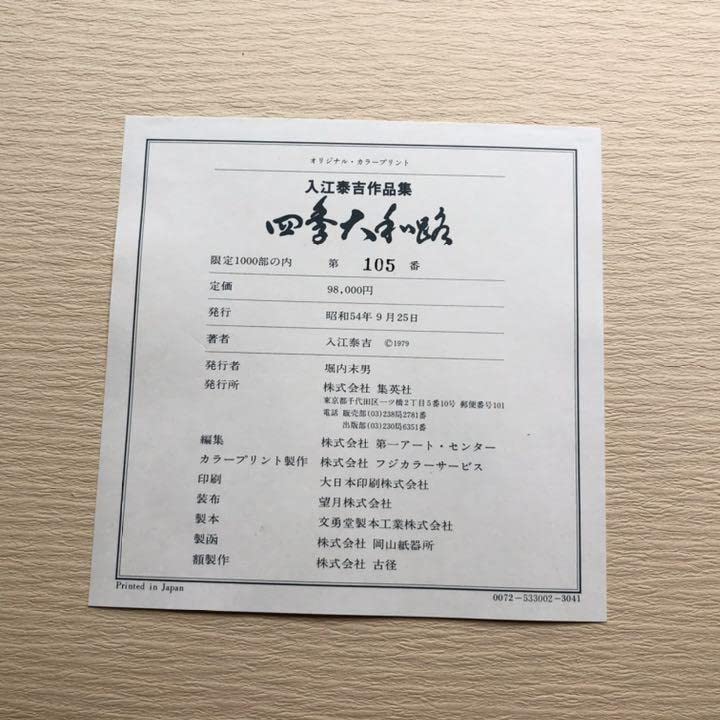 オリジナル・カラープリント
入江泰吉作品集
四季大和路
限定1000部の内 第 105 番
定価 98,000円
発行 昭和54年9月25日
著者 入江泰吉 ©1979
発行者 堀内末男
発行所 株式会社 集英社
東京都千代田区一ツ橋2丁目5番10号 郵便番号101
電話 販売部(03)238局2781番
出版部(03)230局6351番
編集 株式会社 第一アート・センター
カラープリント製作 株式会社 フジカラーサービス
印刷 大日本印刷株式会社
装布 望月株式会社
製本 文勇堂製本工業株式会社
製函 株式会社 岡山紙器所
額製作 株式会社 古径
Printed in Japan
0072-533002-3041